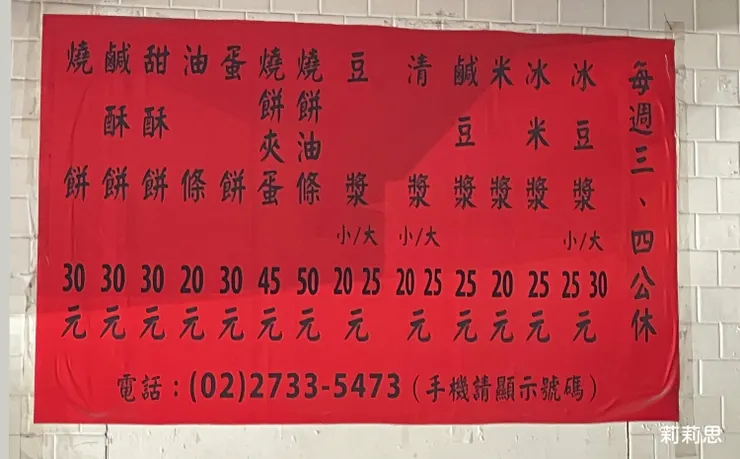 每週三、四公休
冰豆漿 小/大 25 30元
冰米漿 25元
米漿 20元
鹹豆漿 25元
清漿 小/大 20 25元
豆漿 小/大 20 25元
燒餅油條 50元
燒餅夾蛋 45元
蛋餅 30元
油條 20元
甜酥餅 30元
鹹酥餅 30元
燒餅 30元
電話：(02)2733-5473（手機請顯示號碼）
莉莉思